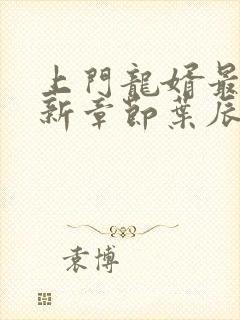 上門龍婿最
新章節葉辰
袁博